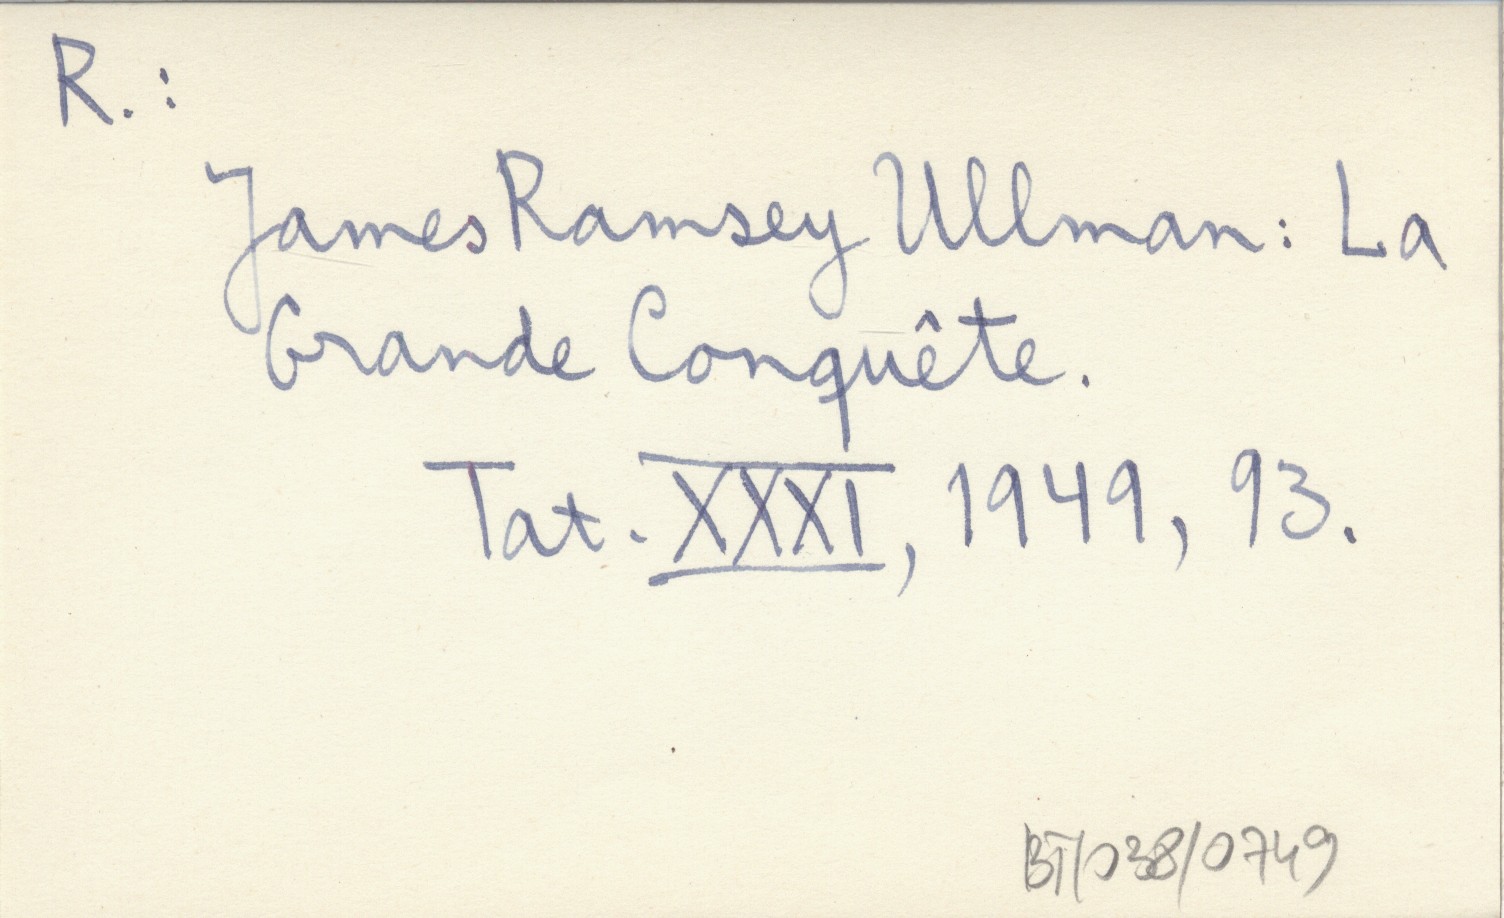 R.:
James Ramsey Ullman: La
Grande Conquête.
Tat. XXXI, 1949, 93.
BT/038/0749